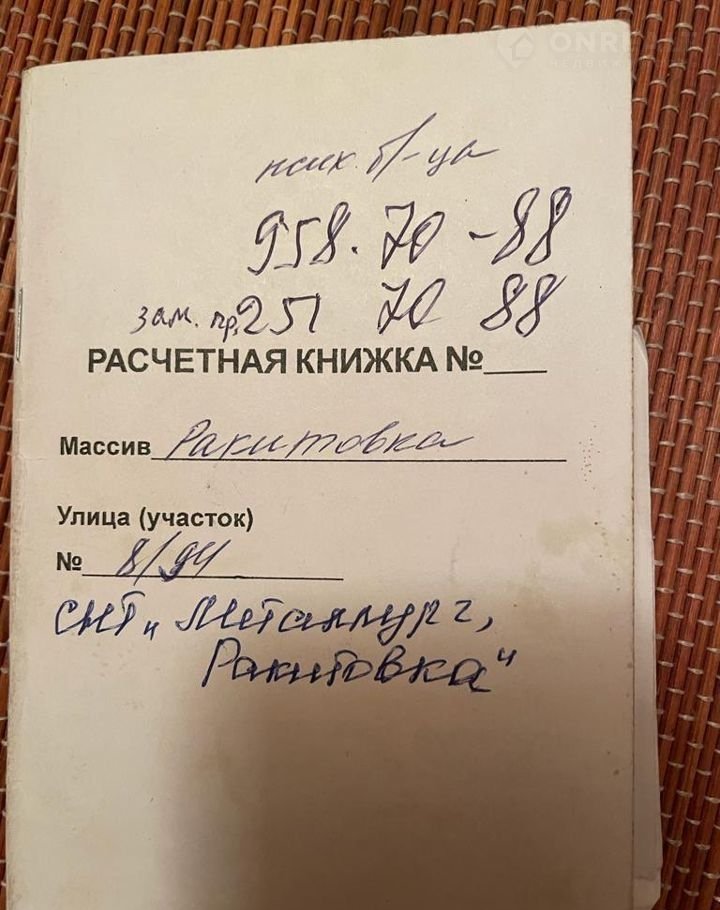 ONR
НЕДВИЖ
псих. б-ца
958.70-88
зам. пр. 251 70 88
РАСЧЕТНАЯ КНИЖКА №
Массив Ракитовка
Улица (участок)
№ 8/94
СНТ „Металлург,
Ракитовка“